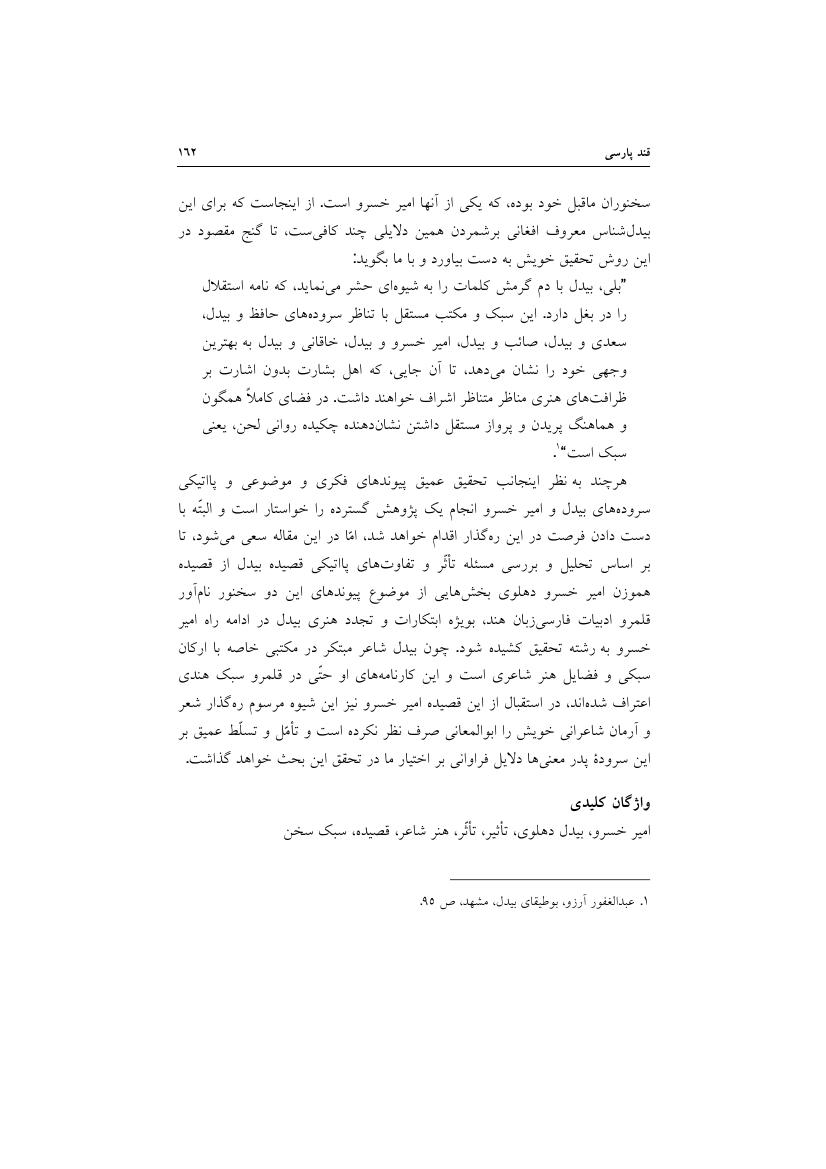 قند پارسی ١٦٢
سخنوران ماقبل خود بوده، که یکی از آنها امیر خسرو است. از اینجاست که برای این
بیدل‌شناس معروف افغانی برشمردن همین دلایلی چند کافی‌ست، تا گنج مقصود در
این روش تحقیق خویش به دست بیاورد و با ما بگوید:
”بلی، بیدل با دم گرمش کلمات را به شیوه‌ای حشر می‌نماید، که نامه استقلال
را در بغل دارد. این سبک و مکتب مستقل با تناظر سروده‌های حافظ و بیدل،
سعدی و بیدل، صائب و بیدل، امیر خسرو و بیدل، خاقانی و بیدل به بهترین
وجهی خود را نشان می‌دهد، تا آن جایی، که اهل بشارت بدون اشارت بر
ظرافت‌های هنری مناظر متناظر اشراف خواهند داشت. در فضای کاملاً همگون
و هماهنگ پریدن و پرواز مستقل داشتن نشان‌دهنده چکیده روانی لحن، یعنی
سبک است“۱.
هرچند به نظر اینجانب تحقیق عمیق پیوندهای فکری و موضوعی و پااتیکی
سروده‌های بیدل و امیر خسرو انجام یک پژوهش گسترده را خواستار است و البتّه با
دست دادن فرصت در این ره‌گذار اقدام خواهد شد، امّا در این مقاله سعی می‌شود، تا
بر اساس تحلیل و بررسی مسئله تأثّر و تفاوت‌های پااتیکی قصیده بیدل از قصیده
هموزن امیر خسرو دهلوی بخش‌هایی از موضوع پیوندهای این دو سخنور نام‌آور
قلمرو ادبیات فارسی‌زبان هند، بویژه ابتکارات و تجدد هنری بیدل در ادامه راه امیر
خسرو به رشته تحقیق کشیده شود. چون بیدل شاعر مبتکر در مکتبی خاصه با ارکان
سبکی و فضایل هنر شاعری است و این کارنامه‌های او حتّی در قلمرو سبک هندی
اعتراف شده‌اند، در استقبال از این قصیده امیر خسرو نیز این شیوه مرسوم ره‌گذار شعر
و آرمان شاعرانی خویش را ابوالمعانی صرف نظر نکرده است و تأمّل و تسلّط عمیق بر
این سرودهٔ پدر معنی‌ها دلایل فراوانی بر اختیار ما در تحقق این بحث خواهد گذاشت.
واژگان کلیدی
امیر خسرو، بیدل دهلوی، تأثیر، تأثّر، هنر شاعر، قصیده، سبک سخن
۱. عبدالغفور آرزو، بوطیقای بیدل، مشهد، ص ٩٥.